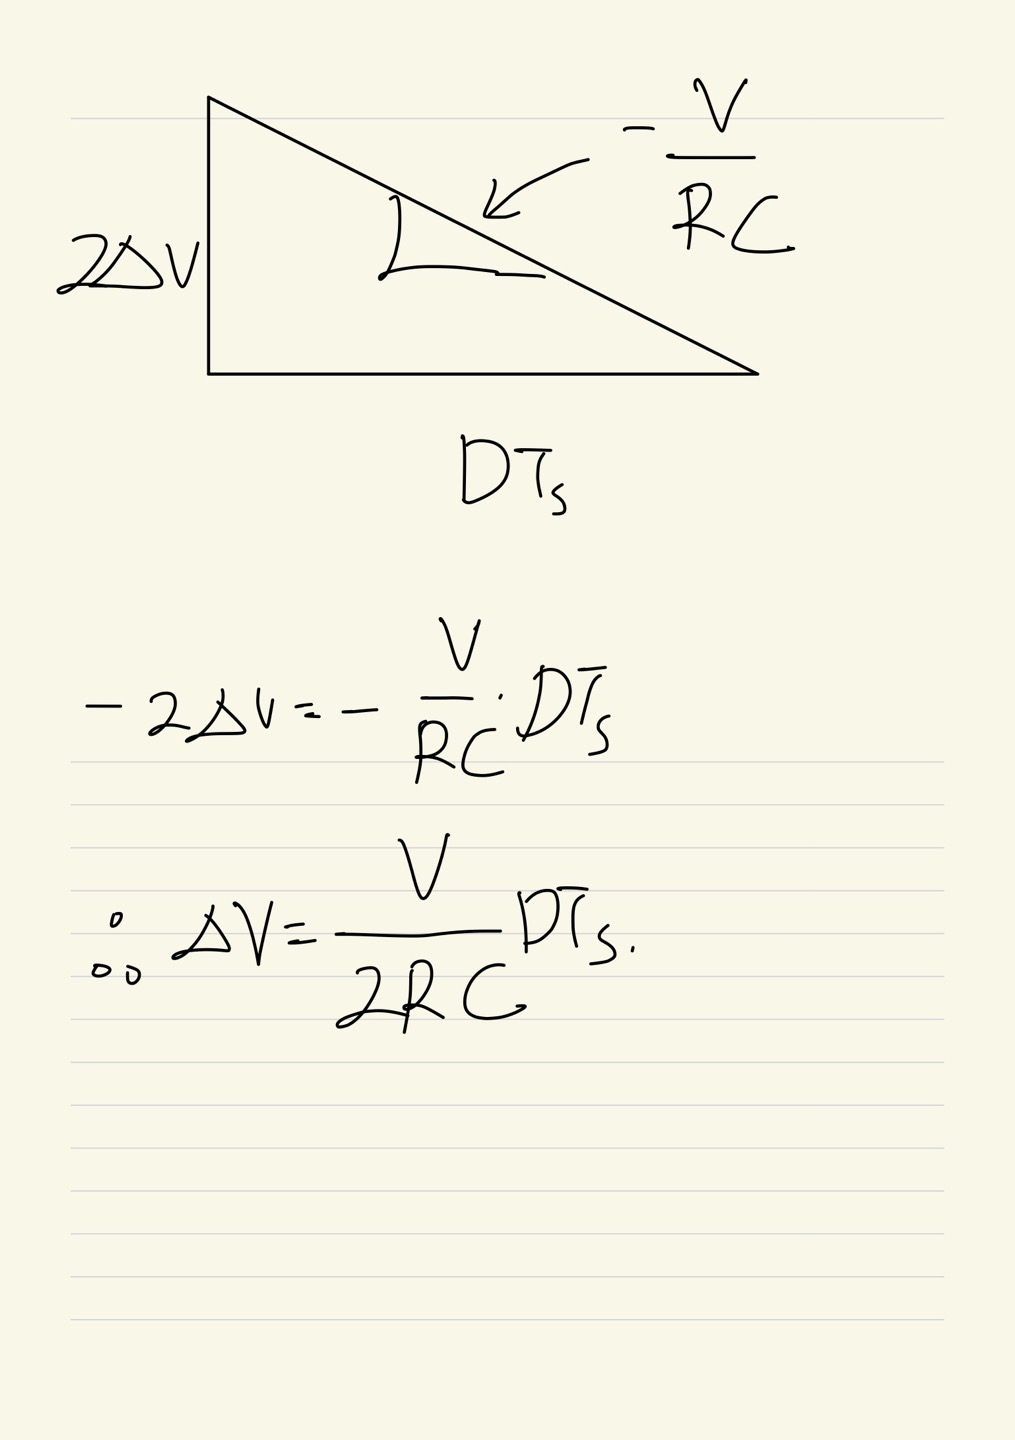 - V/RC
2ΔV
DTs
- 2ΔV = - V/RC · DTs
∴ ΔV = V/2RC DTs.